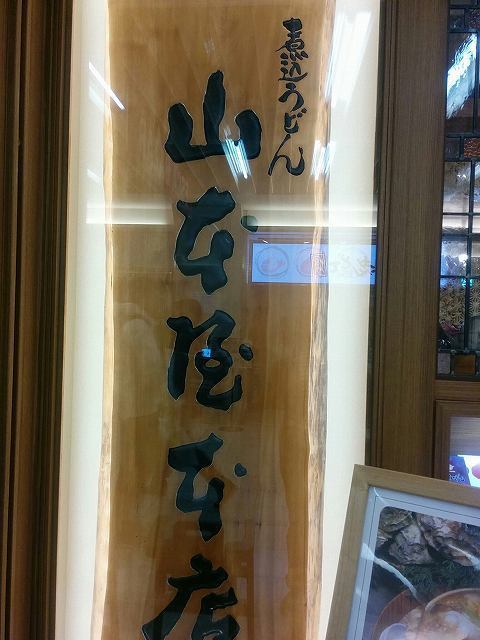 煮込うどん
山本屋本店